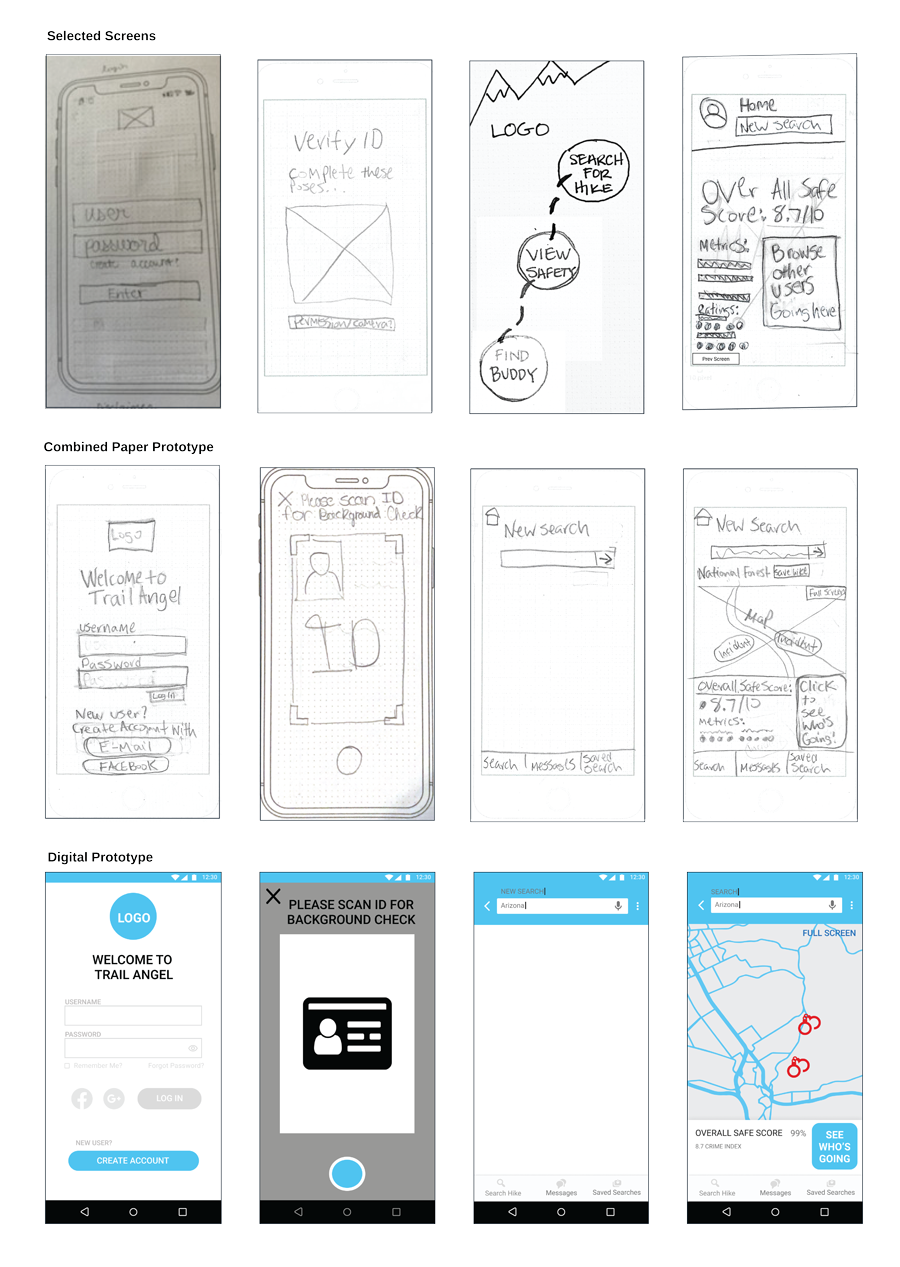 Selected Screens
login
user
password
create account?
Enter
Disclaimer
Verify ID
complete these
poses...
Permission/camera?
LOGO
SEARCH
FOR
HIKE
VIEW
SAFETY
FIND
BUDDY
Home
New search
OVer All Safe
Score: 8.7/10
Metrics:
Ratings:
Browse
other
users
Going here
Prev Screen
Combined Paper Prototype
Logo
Welcome to
Trail Angel
username
Password
Password
Log In
New user?
Create Account with
E-Mail
FACEBOOK
X Please scan ID
for Background Check
ID
New search
Search
Messages
Saved
Search
New Search
National Forest
Save Hike
Full Screen
Map
Incident
Incident
Overall Safe Score:
8.7/10
Metrics:
Click
to
see
who's
Going!
Search
Messages
Saved
Search
Digital Prototype
12:30
LOGO
WELCOME TO
TRAIL ANGEL
USERNAME
PASSWORD
Remember Me?
Forgot Password?
f
G+
LOG IN
NEW USER?
CREATE ACCOUNT
12:30
PLEASE SCAN ID FOR
BACKGROUND CHECK
12:30
NEW SEARCH
Arizona
Search Hike
Messages
Saved Searches
12:30
SEARCH
Arizona
FULL SCREEN
OVERALL SAFE SCORE 99%
8.7 CRIME INDEX
SEE
WHO'S
GOING
Search Hike
Messages
Saved Searches